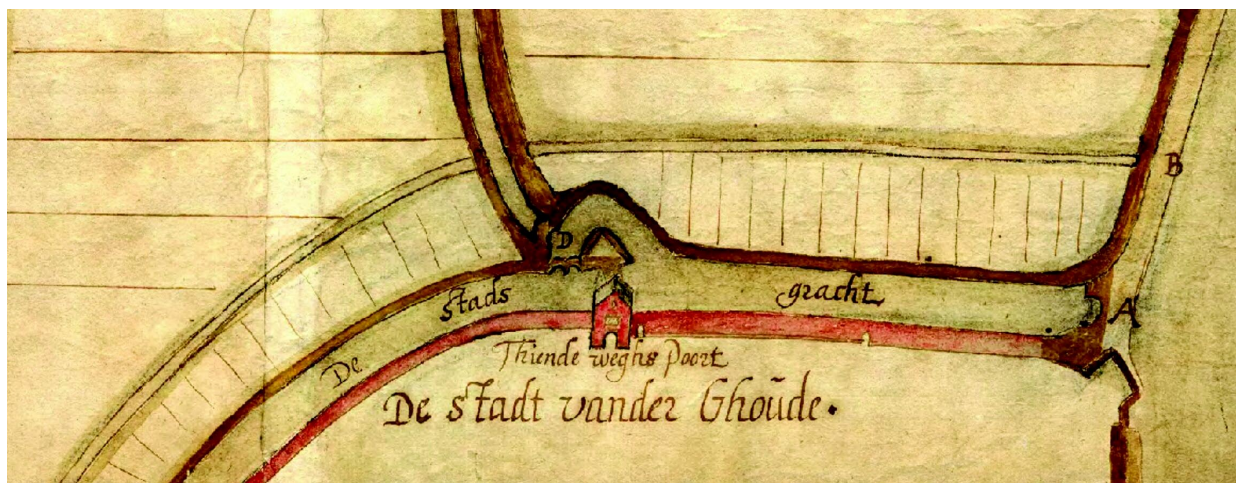 B
D
A
De stads gracht
Thiende weghs Poort
De stadt vander Ghoũde.